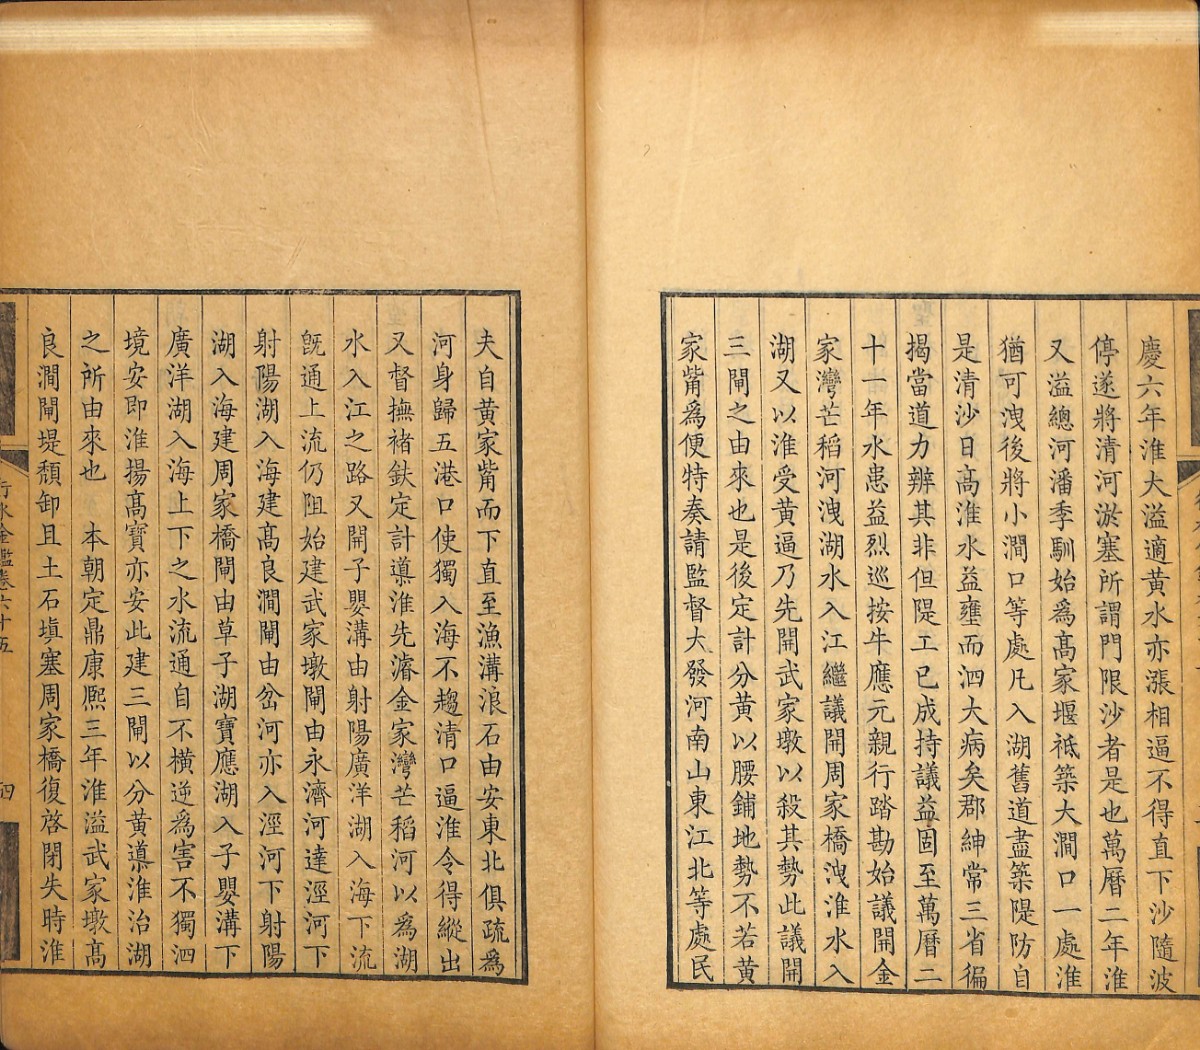 慶六年淮大溢適黃水亦漲相逼不得直下沙隨波
停遂將清河淤塞所謂門限沙者是也萬曆二年淮
又溢總河潘季馴始爲髙家堰祗築大澗口一處淮
猶可洩後將小澗口等處凡入湖舊道盡築隄防自
是清沙日高淮水益壅而泗大病矣郡紳常三省徧
揭當道力辨其非但隄工已成持議益固至萬曆二
十一年水患益烈巡按牛應元親行踏勘始議開金
家灣芒稻河洩湖水入江繼議開周家橋洩淮水入
湖又以淮受黃逼乃先開武家墩以殺其勢此議開
三閘之由來也是後定計分黃以腰鋪地勢不若黃
家觜爲便特奏請監督大發河南山東江北等處民
夫自黃家觜而下直至漁溝浪石由安東北俱疏爲
河身歸五港口使獨入海不趨清口逼淮令得縱出
又督撫褚鈇定計導淮先濬金家灣芒稻河以爲湖
水入江之路又開子嬰溝由射陽廣洋湖入海下流
旣通上流仍阻始建武家墩閘由永濟河達涇河下
射陽湖入海建髙良澗閘由岔河亦入涇河下射陽
湖入海建周家橋閘由草子湖寶應湖入子嬰溝下
廣洋湖入海上下之水流通自不橫逆爲害不獨泗
境安即淮揚髙寶亦安此建三閘以分黃導淮治湖
之所由來也　本朝定鼎康熙三年淮溢武家墩髙
良澗閘堤頹卸且土石塡塞周家橋復啓閉失時淮
行水金鑑卷六十五
四